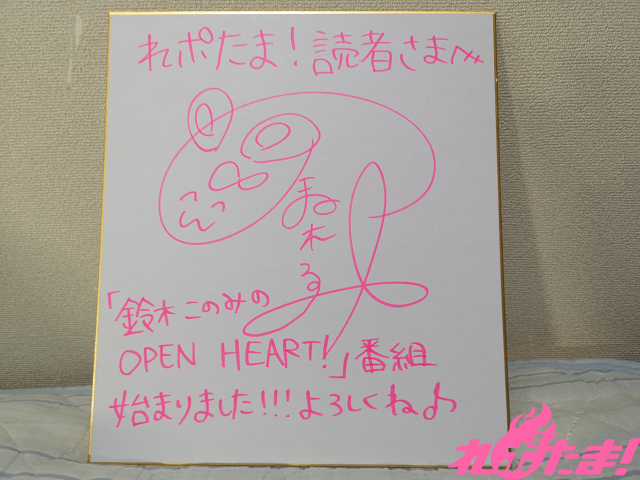 れポたま！読者さまへ
「鈴木このみの
OPEN HEART!」番組
始まりました!!!よろしくねっ
れポたま!